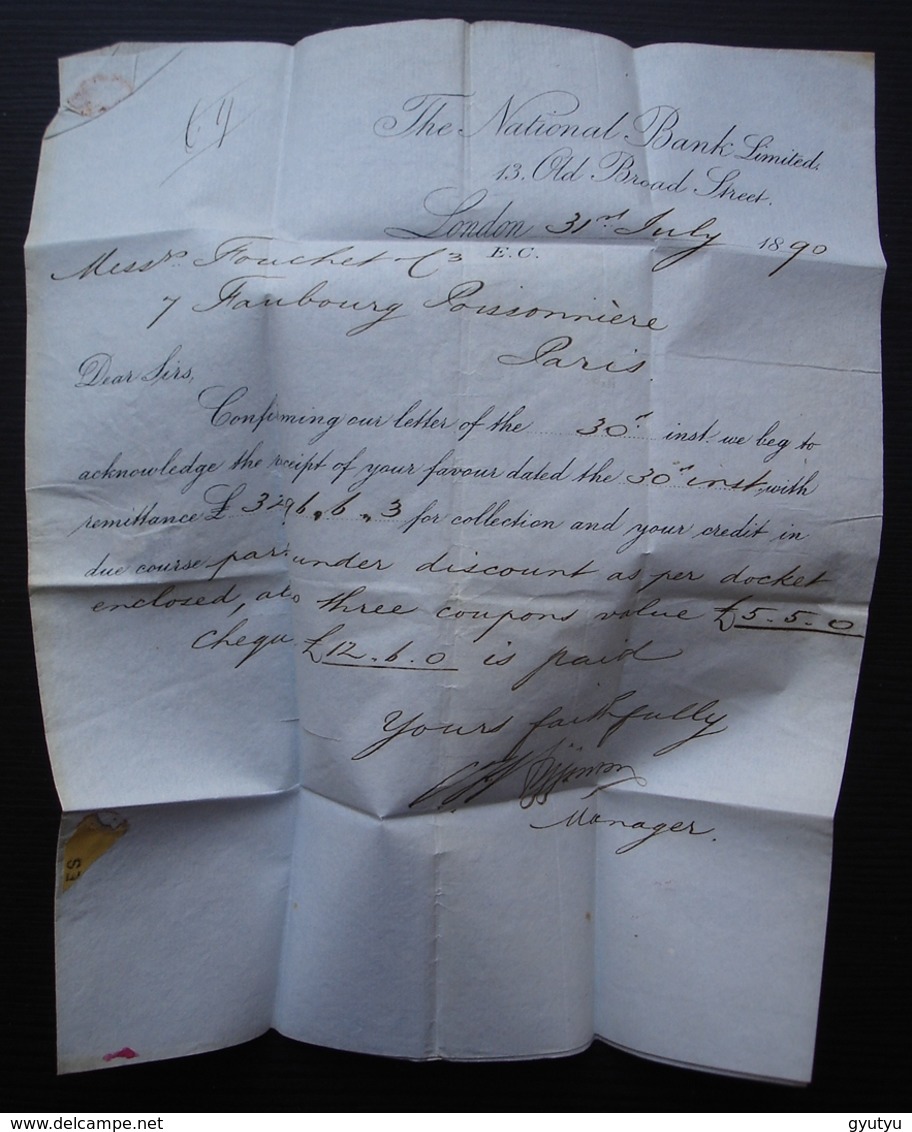 The National Bank Limited.
13, Old Broad Street.
London 31st July 1890
E.C.
Messrs. Fouchet & Co
7 Faubourg Poissonnière
Paris.
Dear Sirs,
Confirming our letter of the 30th inst. we beg to
acknowledge the receipt of your favour dated the 30th inst, with
remittance £ 6, 6, 3 for collection and your credit in
due course part under discount as per docket
enclosed, also three coupons value £5-5-0
£12.6.0 is paid
Yours faithfully
Manager.
ES
delcampe.net
gyutyu